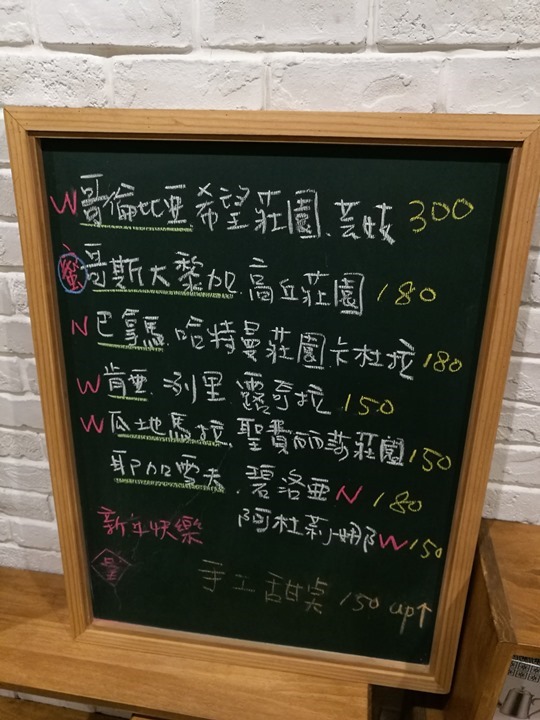 W 哥倫比亞.希望莊園.芸妓 300
蜜 哥斯大黎加.高丘莊園 180
N 巴拿馬.哈特曼莊園.卡杜拉 180
W 肯亞.涮里.露奇拉 150
W 瓜地馬拉.聖費麗莎莊園 150
耶加雪夫.碧洛亞 N 180
阿杜莉娜 W 150
新年快樂
手工甜桌 150 up↑